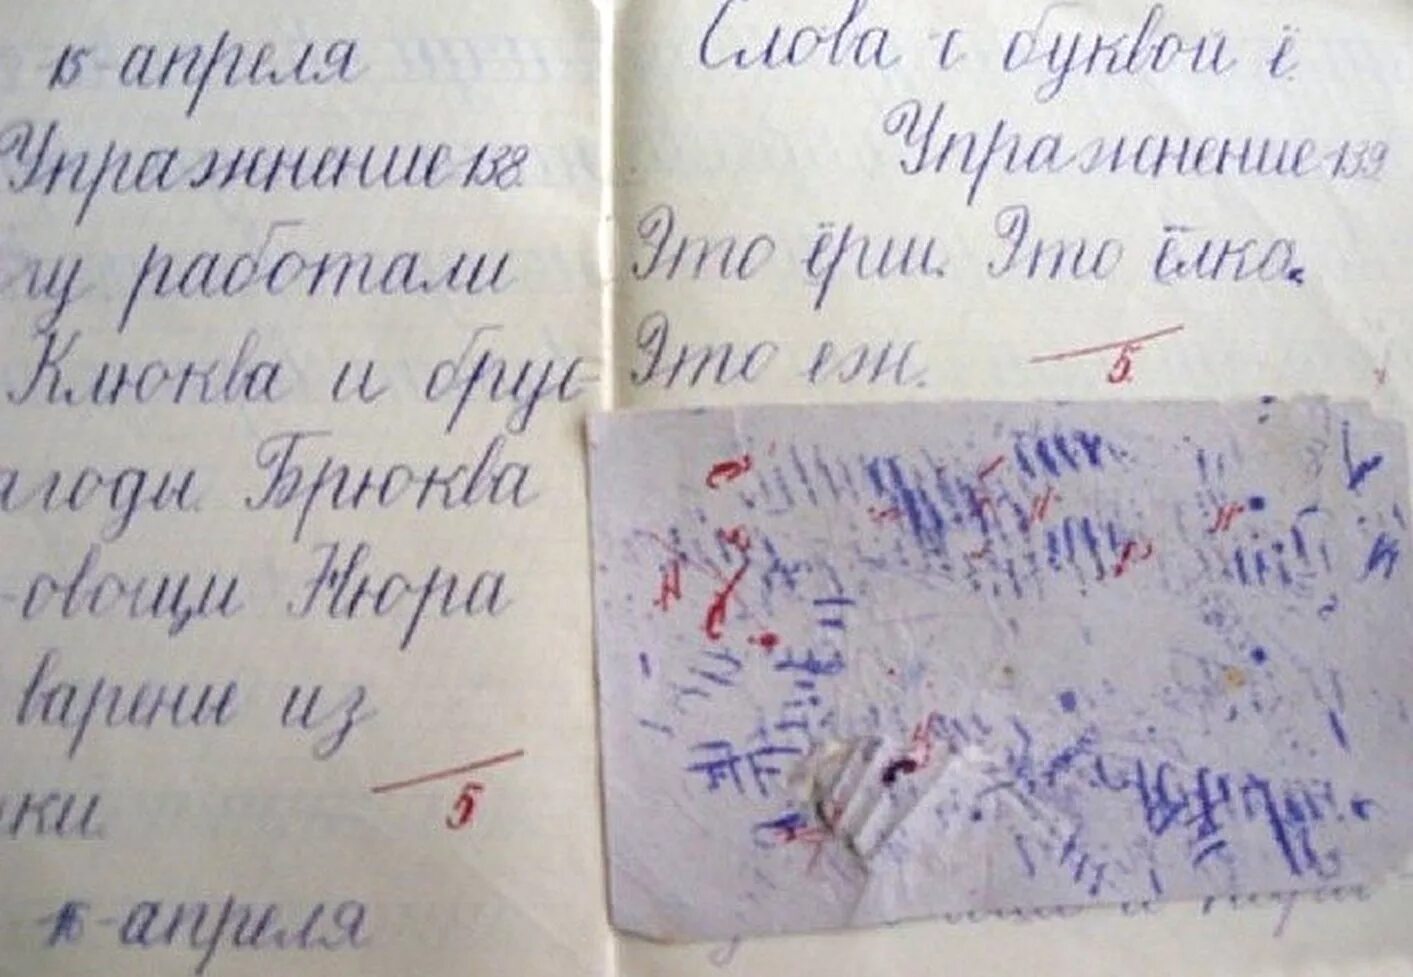 15-апреля
Упражнение 138.
гу работали
Клюква и брус-
ягоды. Брюква
-овощи Нюра
варенье из
ки.
5
16-апреля
Слова с буквой ё.
Упражнение 139
Это ёрш. Это ёлка.
Это еж.
5